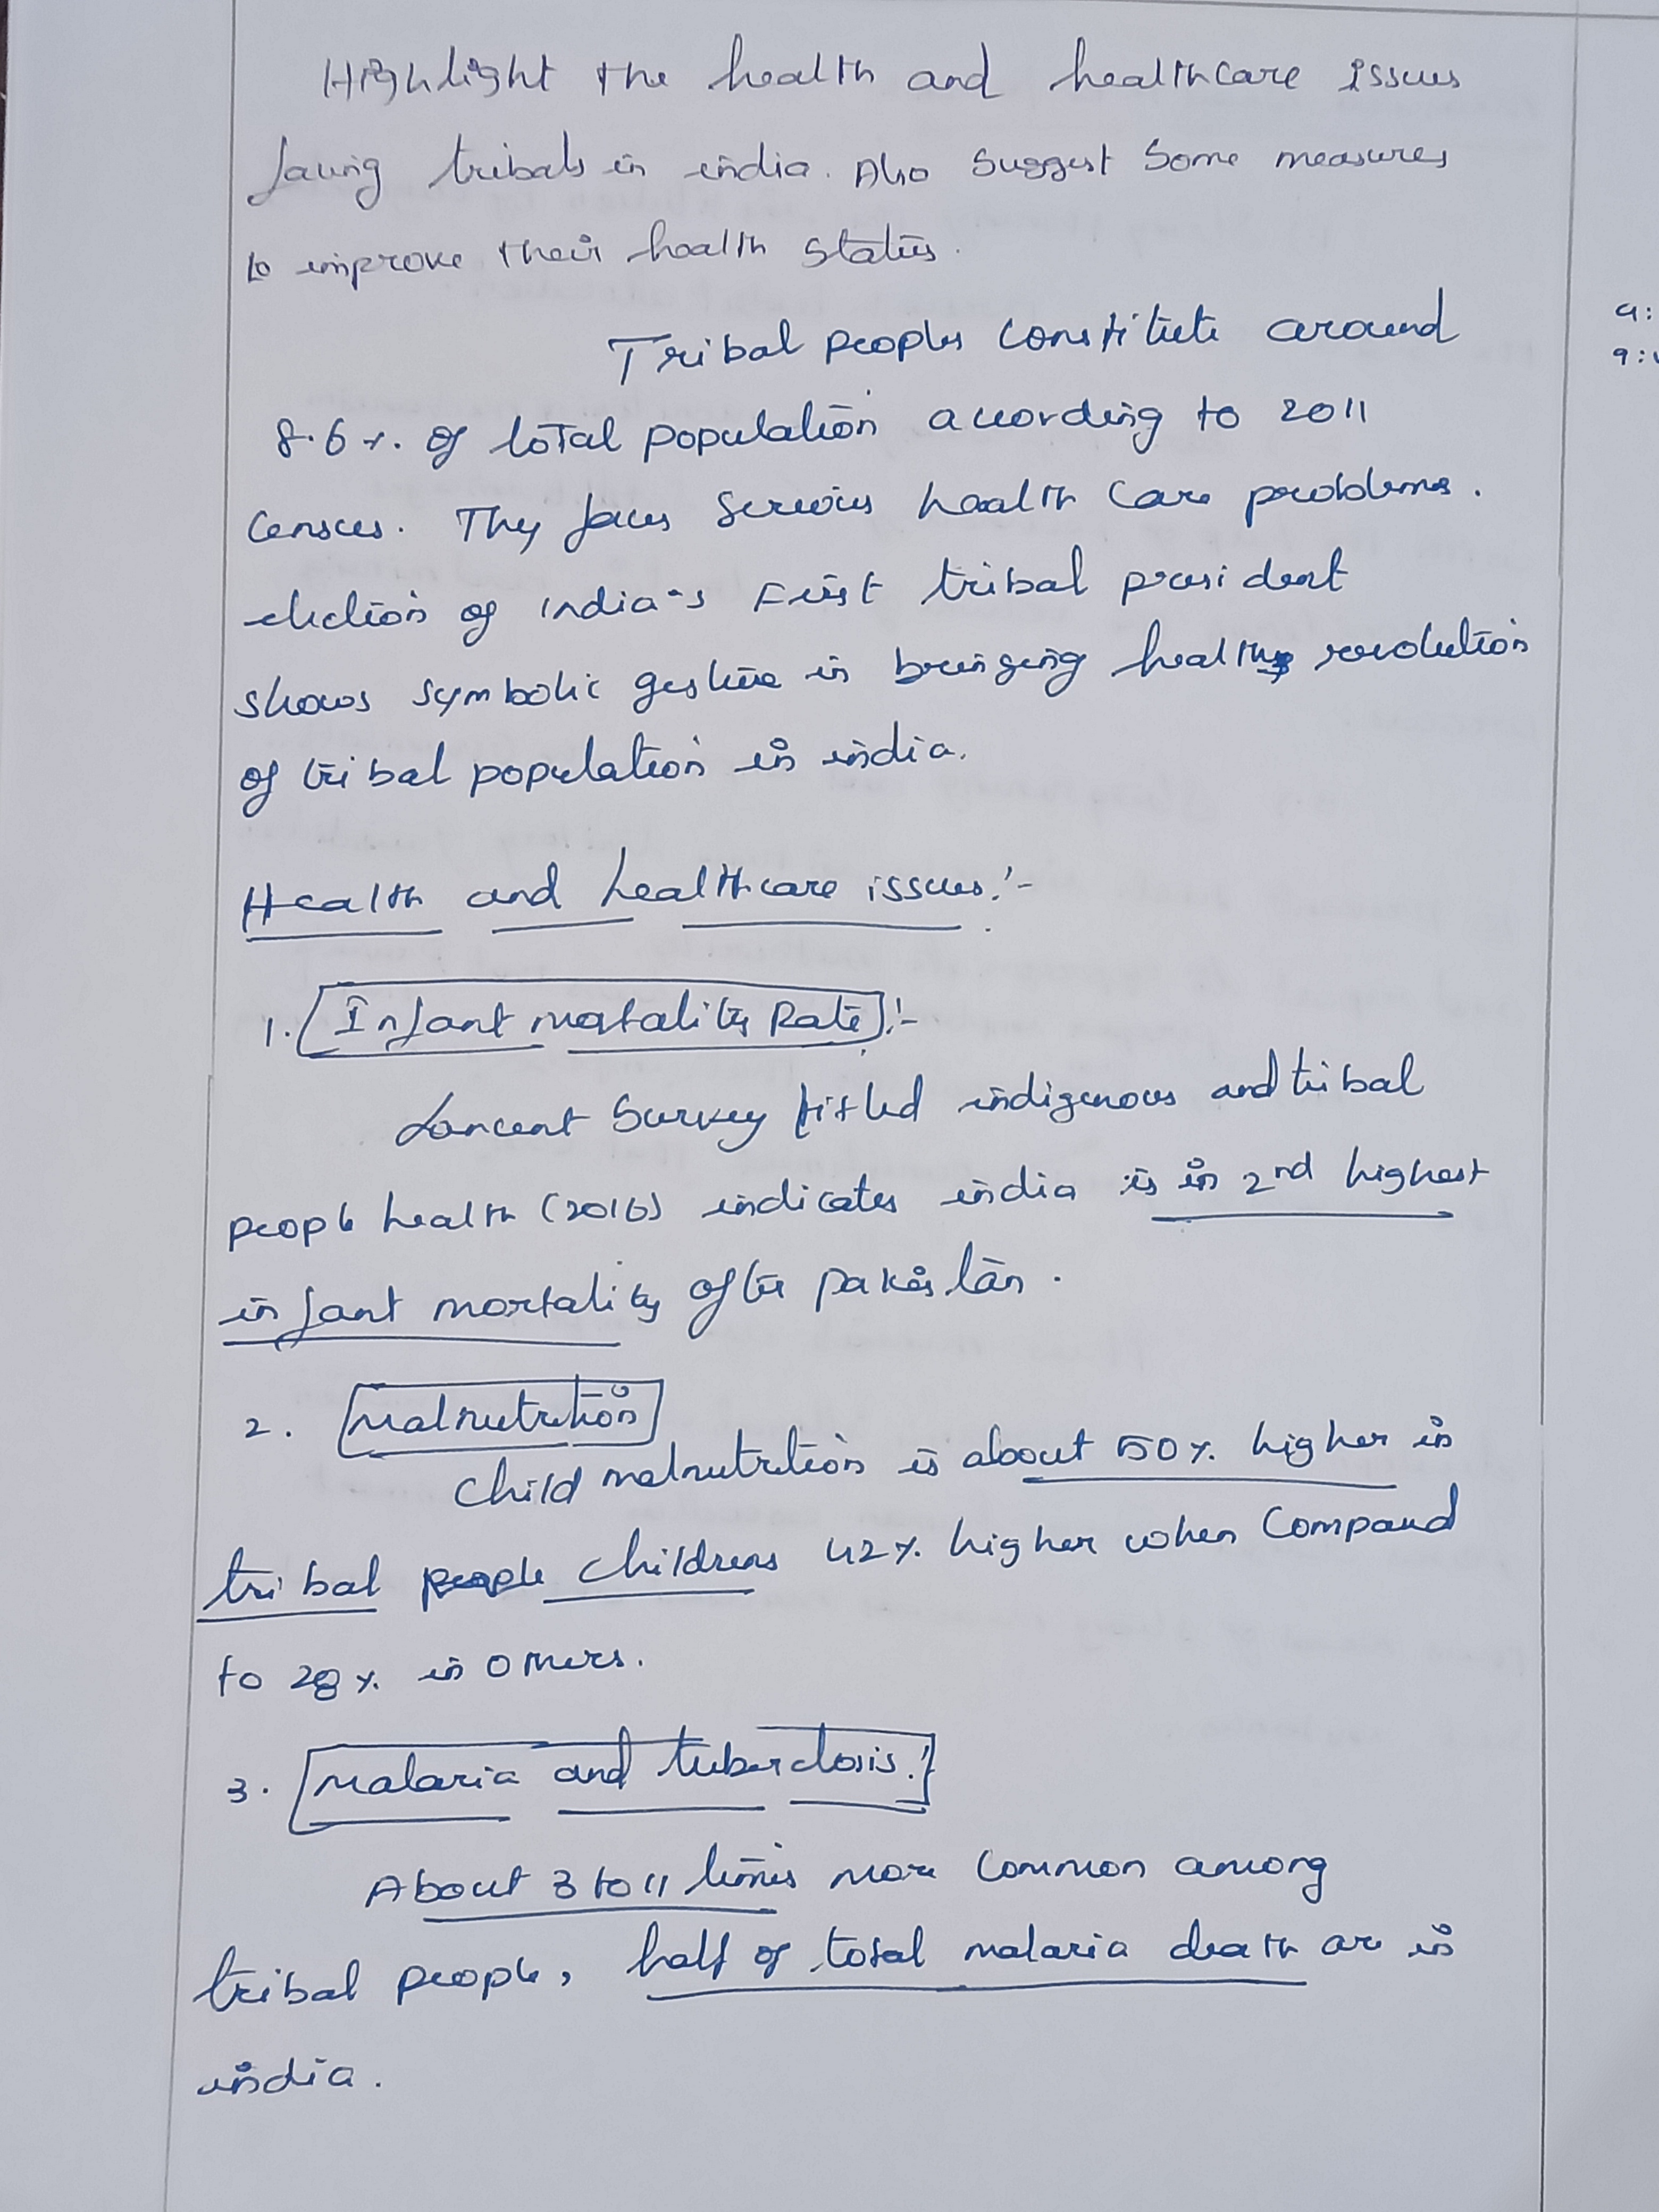 Highlight the health and healthcare issues
facing tribals in india. Also suggest some measures
to improve their health status.
Tribal peoples constitute around
8.6%. of total population according to 2011
Census. They faces serious health care problems.
election of india's First tribal president
shows symbolic gesture in bringing health revolution
of tribal population in india.
Health and healthcare issues:-
1. Infant mortality Rate:-
Lancent Survey titled indigenous and tribal
people health (2016) indicates india is in 2nd highest
infant mortality after pakistan.
2. Malnutrition
Child malnutrition is about 50%. higher in
tribal people childrens 42%. higher when compared
to 28%. in others.
3. Malaria and tuberclosis:
About 3 to 11 times more common among
tribal people, half of total malaria death are in
india.